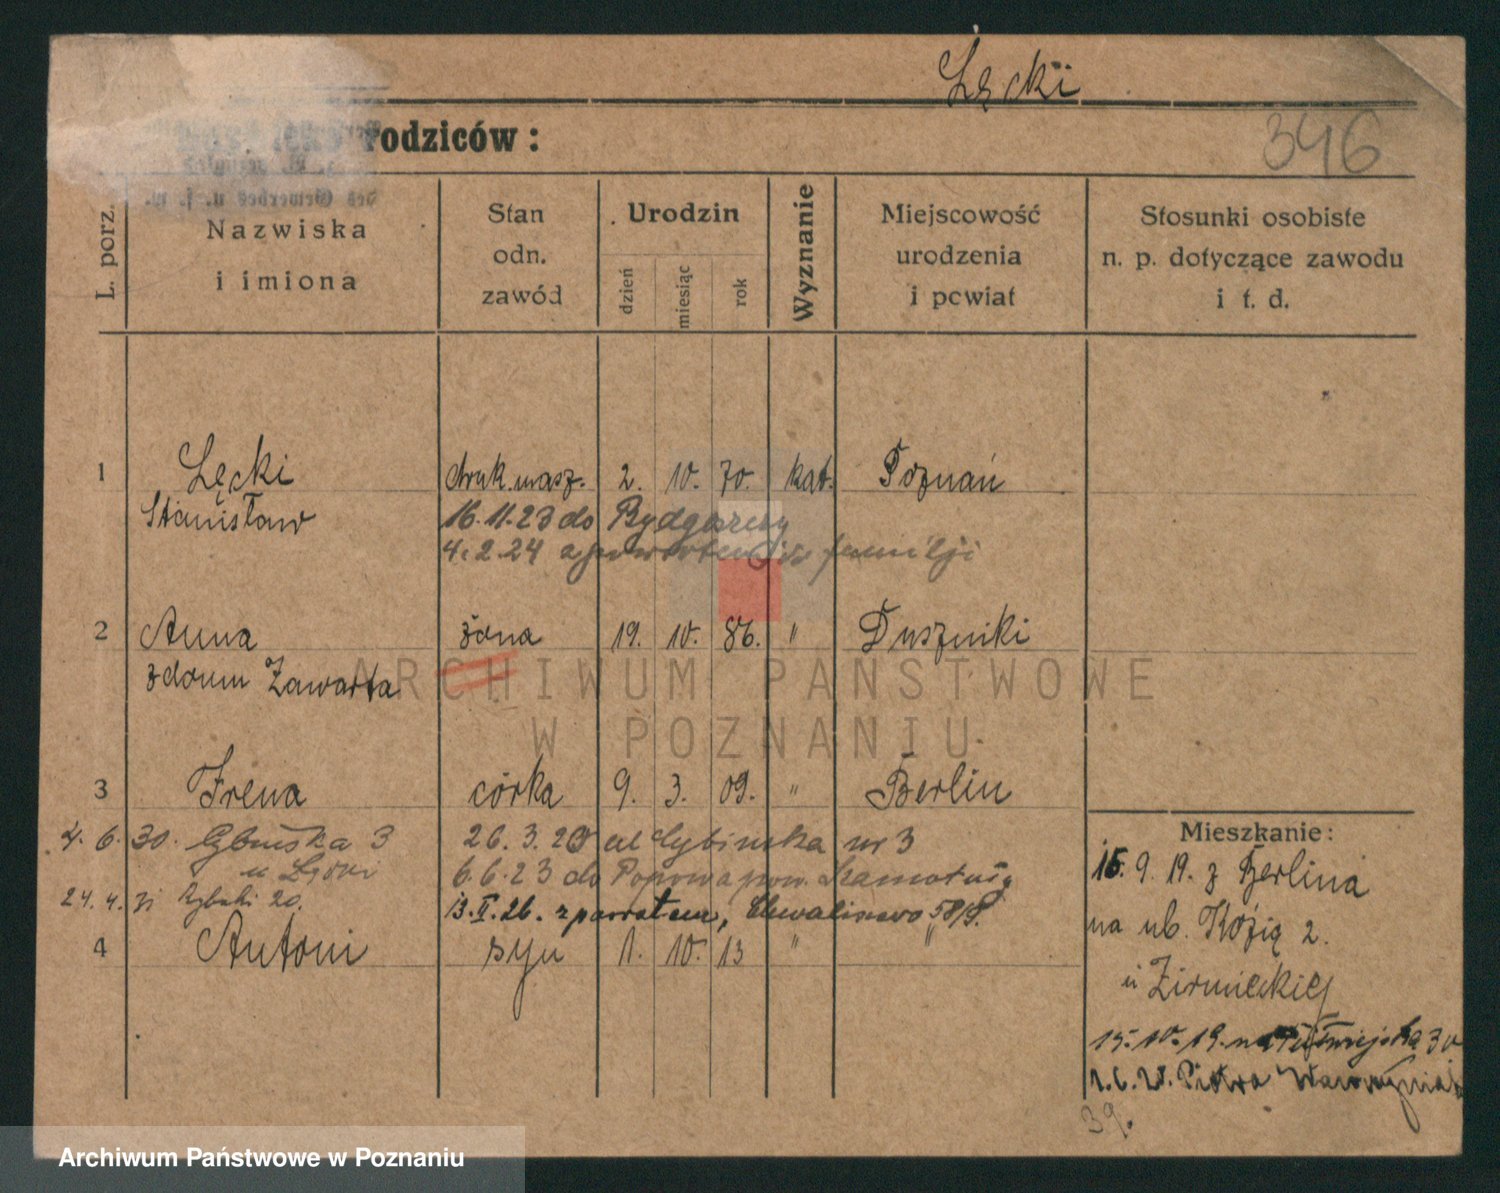 Łęcki
346
rodziców:
L. porz.
Nazwiska
i imiona
Stan
odn.
zawód
Urodzin
dzień
miesiąc
rok
Wyznanie
Miejscowość
urodzenia
i powiat
Stosunki osobiste
n. p. dotyczące zawodu
i t. d.
1 Łęcki druk. masz. 2. 10. 70. kat. Poznań
Stanisław 16.11.23 do Bydgoszczy
4.2.24 z powrotem familji
2 Anna żona 19. 10. 86. " Duszniki
z domu Zawarta
ARCHIWUM PAŃSTWOWE
W POZNANIU
3 Irena córka 9. 3. 09. " Berlin
4. 6. 30. 3 26. 3. 20 ul Rybińska nr 3
6.6.23 do Popowa pow. Szamotuły
24. 4. 31 Rybaki 20. 13. II. 26. z powrotem, Chwaliszewo 58/9.
4 Antoni syn 1. 10. 13 " "
Mieszkanie:
15. 9. 19. z Berlina
na ul. Kozią 2.
u
15. 10. 19. na Półwiejską 30
Piotra Wawrzyniaka
39.
Archiwum Państwowe w Poznaniu